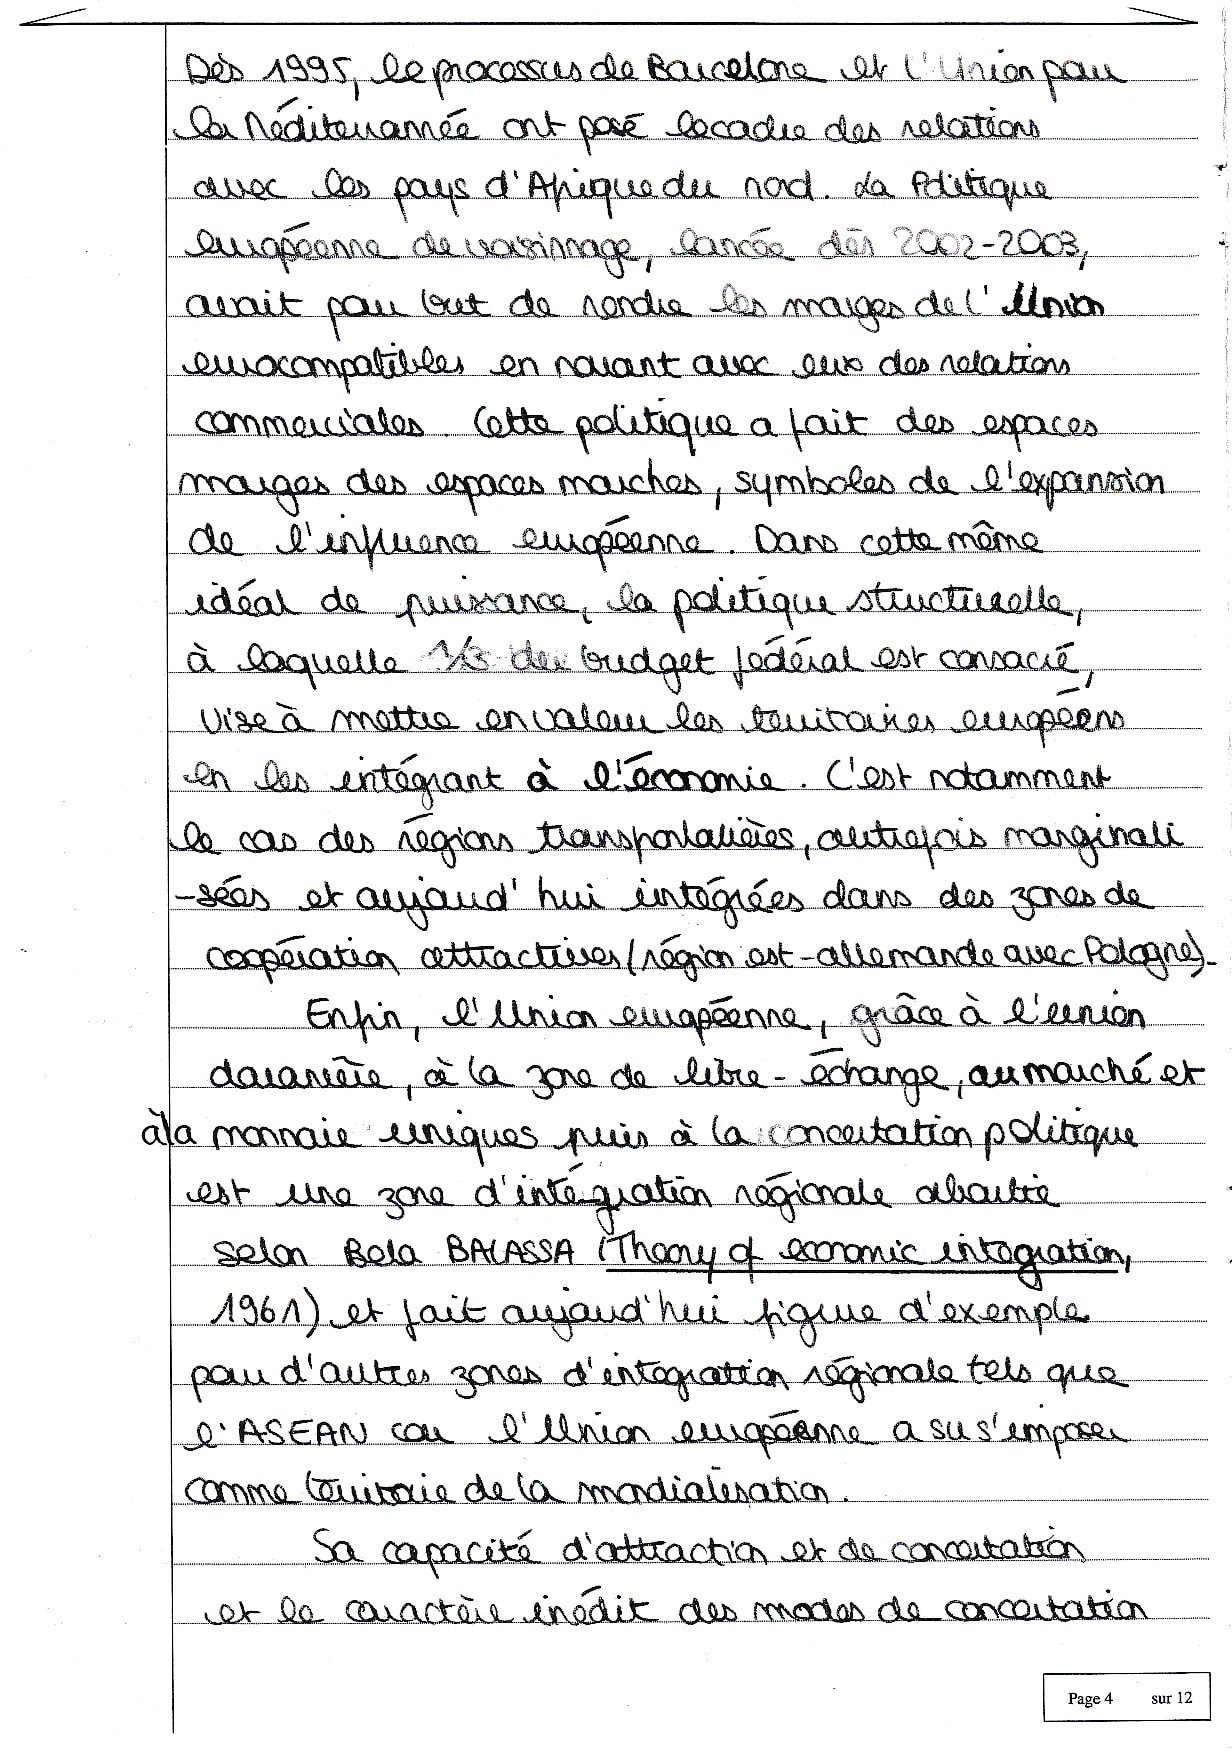 Dès 1995, le processus de Barcelone et l'Union pour
la Méditerrannée ont posé le cadre des relations
avec les pays d'Afrique du nord. La Politique
européenne de voisinnage, lancée dès 2002-2003,
avait pour but de rendre les marges de l'Union
eurocompatibles en nouant avec eux des relations
commerciales. Cette politique a fait des espaces
marges des espaces marches, symboles de l'expansion
de l'influence européenne. Dans cette même
idéal de puissance, la politique structurelle,
à laquelle 1/3 du budget fédéral est consacré,
vise à mettre en valeur les territoires européens
en les intégrant à l'économie. C'est notamment
le cas des régions transfrontalières, autrefois marginali
-sées et aujourd'hui intégrées dans des zones de
coopération attractives (région est-allemande avec Pologne).
Enfin, l'Union européenne, grâce à l'union
douanière, à la zone de libre-échange, au marché et
à la monnaie uniques puis à la concertation politique
est une zone d'intégration régionale aboutie
selon Bela BALASSA (Theory of economic integration,
1961) et fait aujourd'hui figure d'exemple
pour d'autres zones d'intégration régionale tels que
l'ASEAN car l'Union européenne a su s'imposer
comme territoire de la mondialisation.
Sa capacité d'attraction et de concertation
et le caractère inédit des modes de concertation
Page 4 sur 12